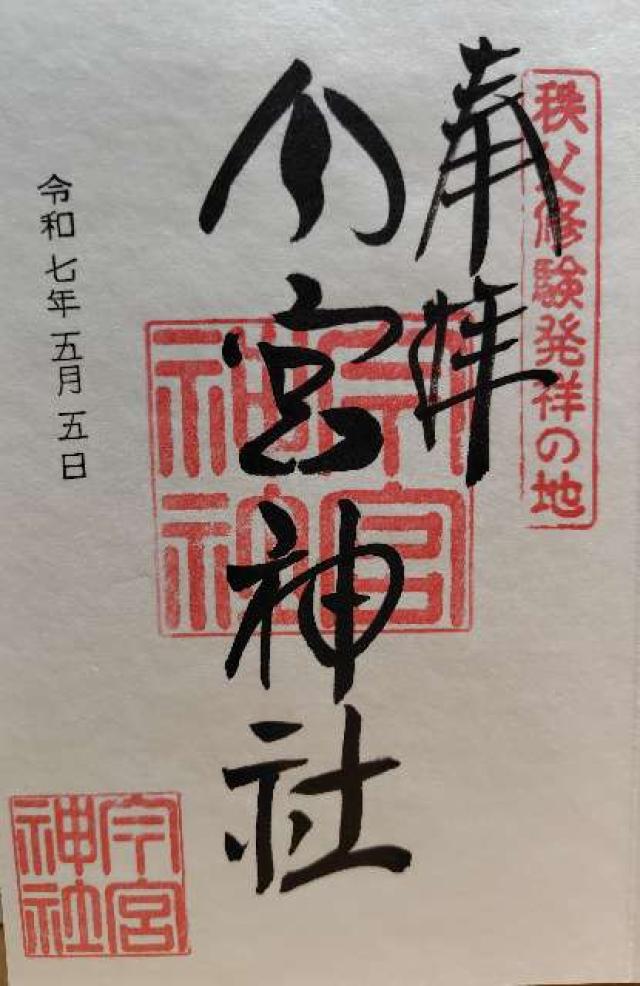 秩父修験発祥の地
奉拝
今宮神社
今宮神社
令和七年五月五日
今宮神社